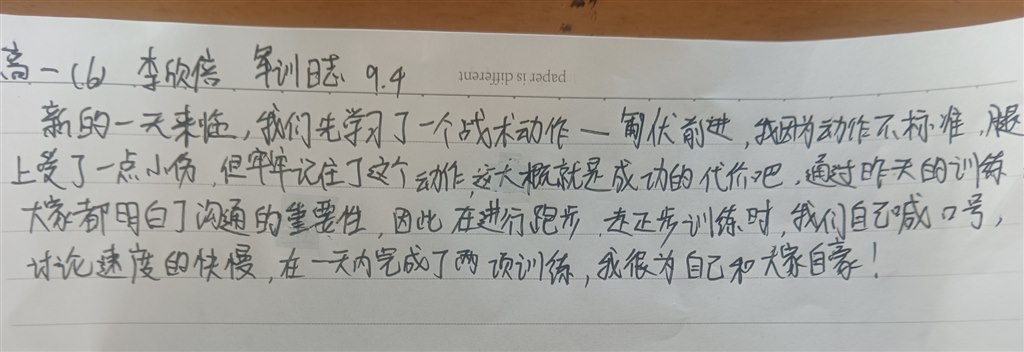 paper is different
高一(6) 李欣倍 军训日志 9.4
新的一天来临,我们先学习了一个战术动作—匍伏前进,我因为动作不标准,腿
上受了一点小伤,但牢牢记住了这个动作,这大概就是成功的代价吧,通过昨天的训练
大家都明白了沟通的重要性,因此在进行跑步,走正步训练时,我们自己喊口号,
讨论速度的快慢,在一天内完成了两项训练,我很为自己和大家自豪!